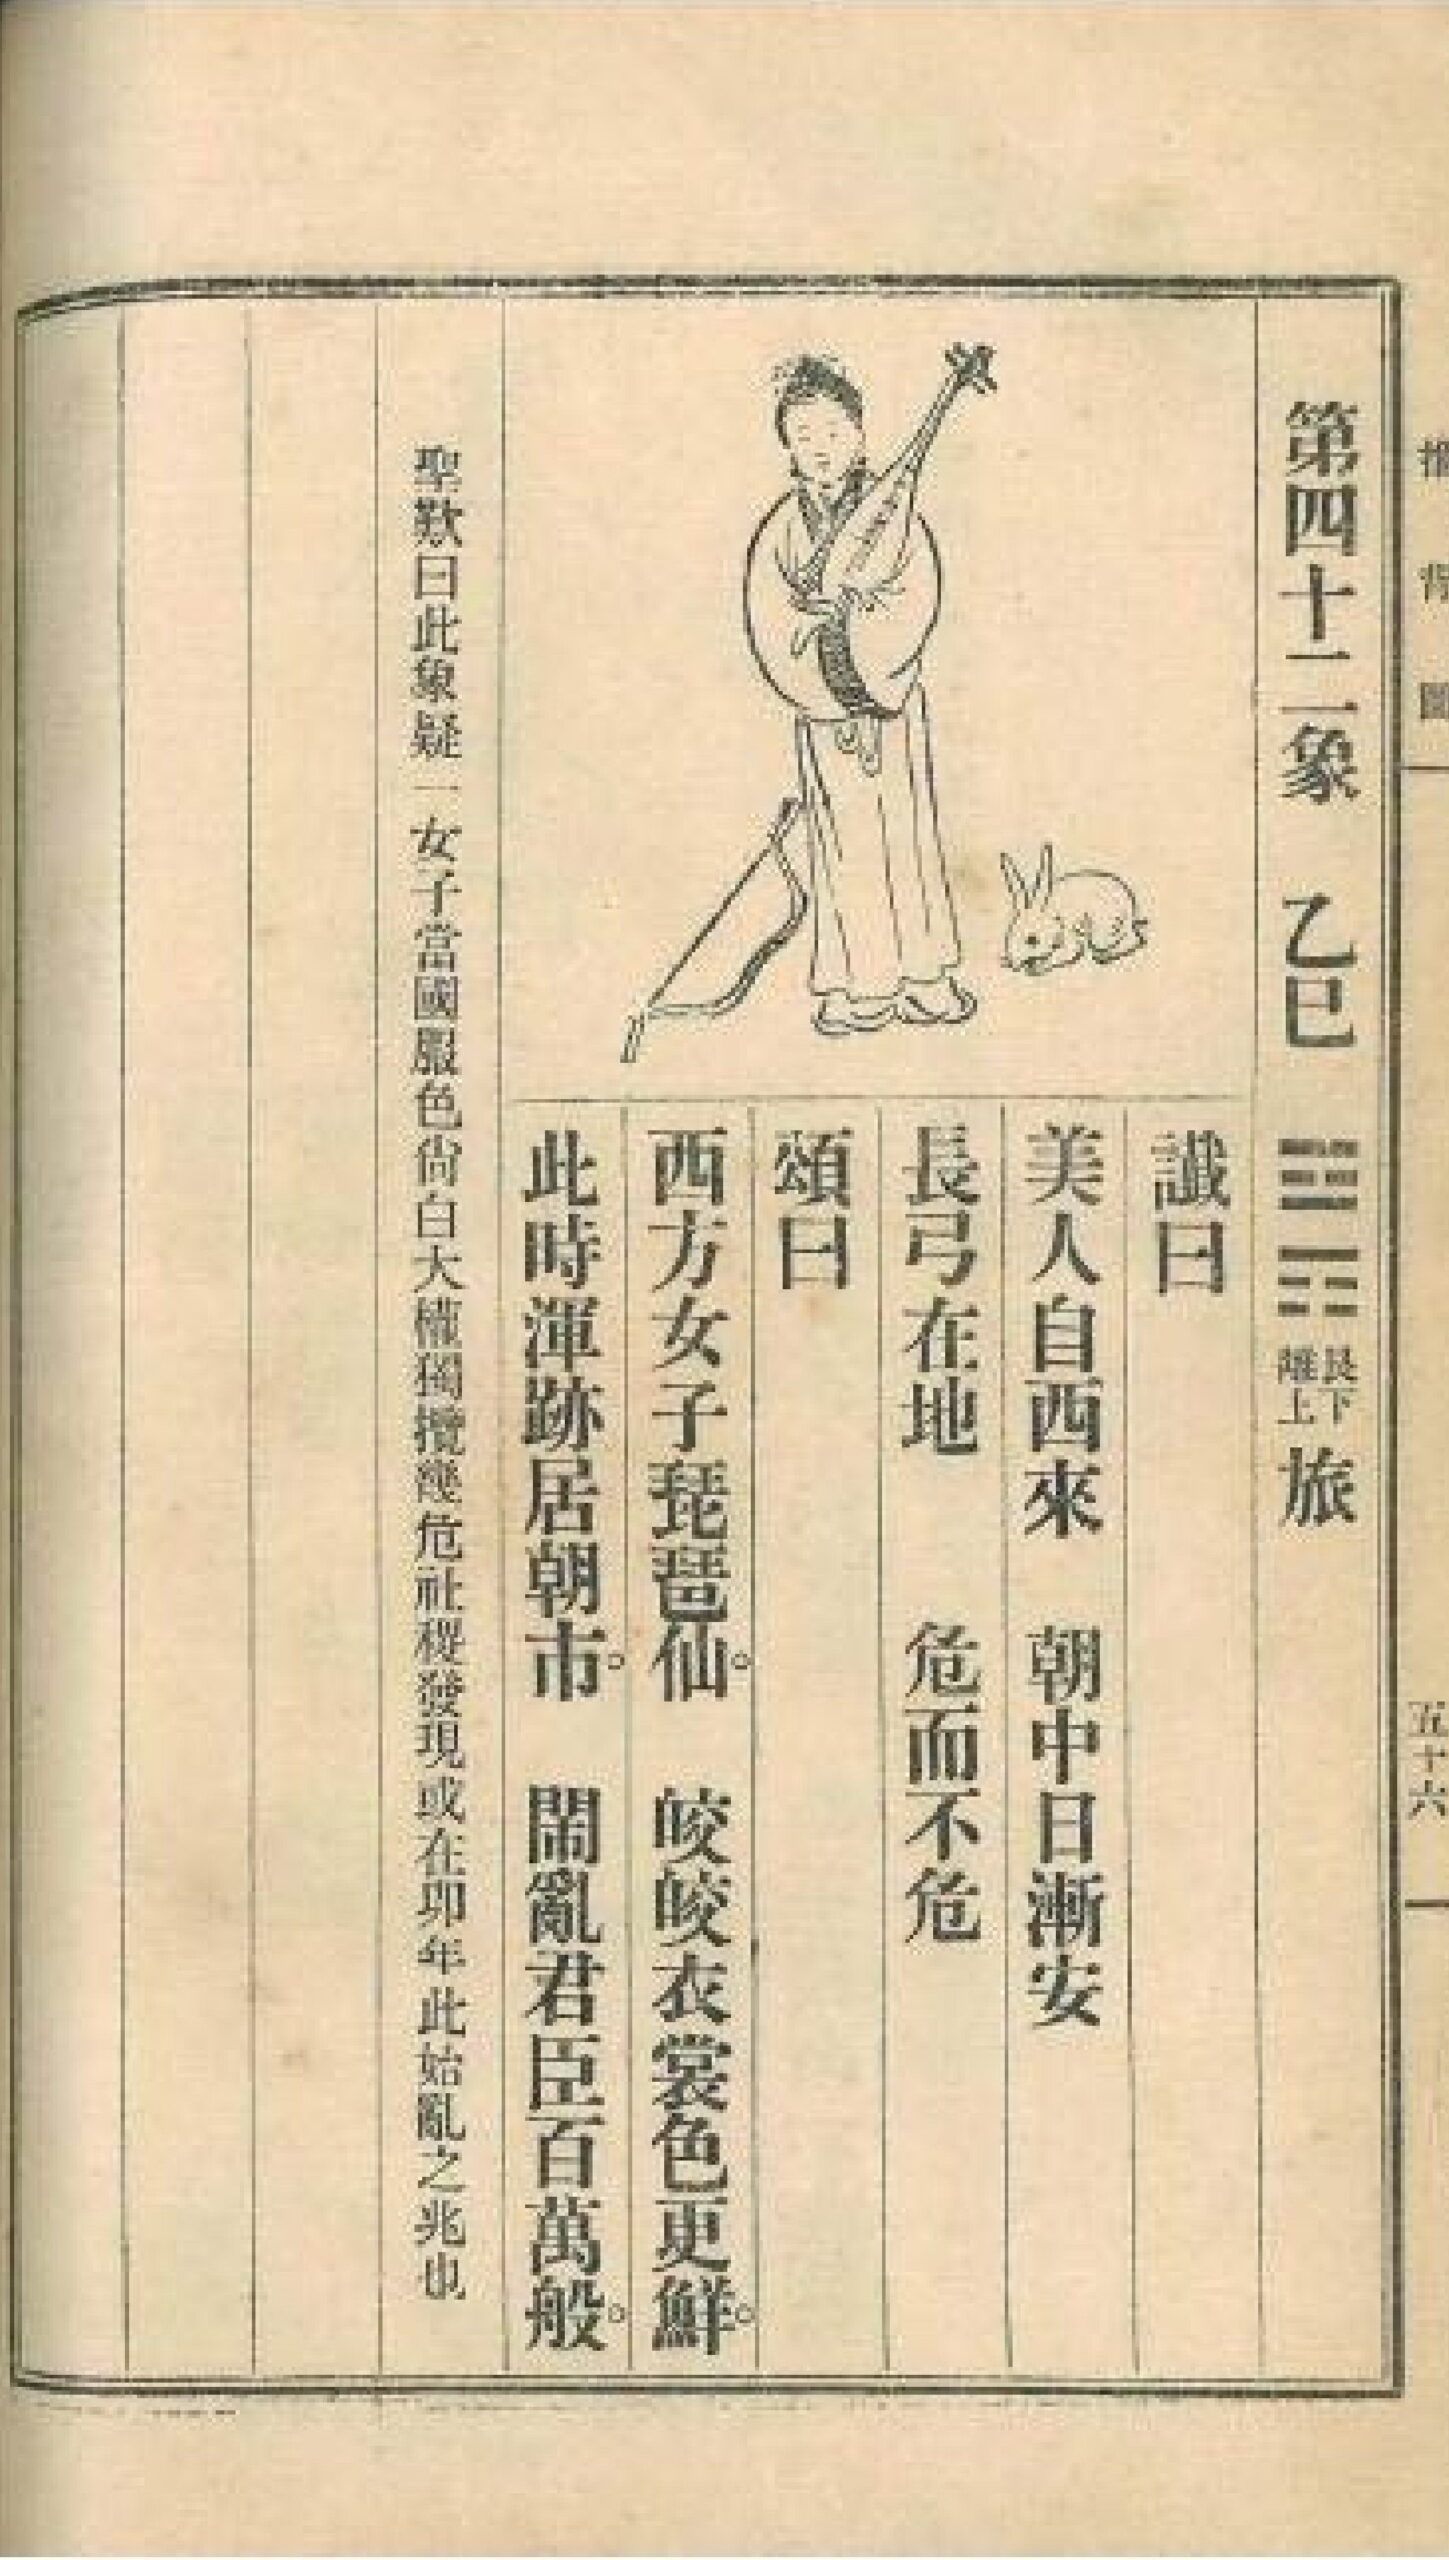 推背圖
五十六
第四十二象 乙巳 艮下離上 旅
讖曰
美人自西來 朝中日漸安
長弓在地 危而不危
頌曰
西方女子琵琶仙。 皎皎衣裳色更鮮。
此時渾跡居朝市。 鬧亂君臣百萬般。
聖歎曰此象疑一女子當國服色尙白大權獨攬幾危社稷發現或在卯年此始亂之兆也